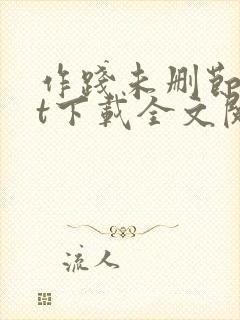 作践未删节
t下载全文阅
流人